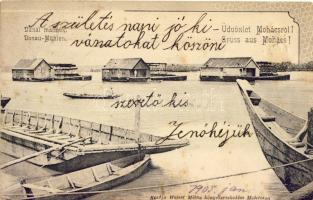 A születés napi jó ki-
vánatokat köszöni
Dunai malmok.
Donau-Mühlen.
Üdvözlet Mohácsról!
Gruss aus Mohács!
szerető kis
Jenőkéjük
1905. jan.
Kiadja Weiser Miksa könyvkereskedése Mohácson